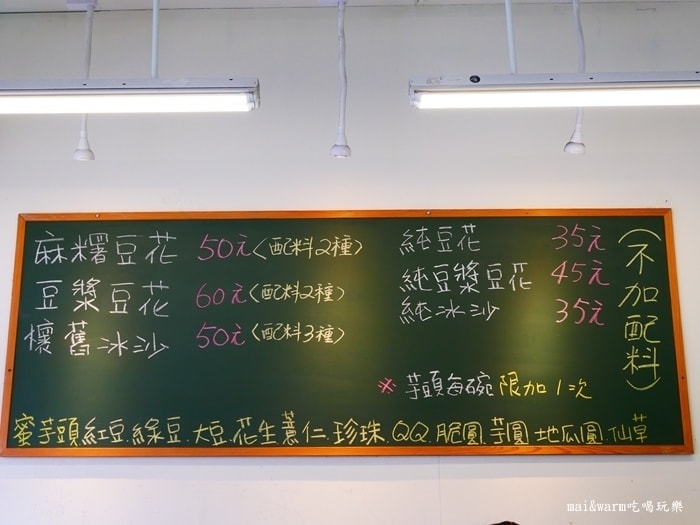 麻糬豆花 50元〈配料2種〉
豆漿豆花 60元〈配料2種〉
懷舊冰沙 50元〈配料3種〉
純豆花 35元
純豆漿豆花 45元
純冰沙 35元
(不加配料)
※ 芋頭每碗限加1次
蜜芋頭.紅豆.綠豆.大豆.花生.薏仁.珍珠.QQ.脆圓.芋圓.地瓜圓.仙草
mai&warm吃喝玩樂